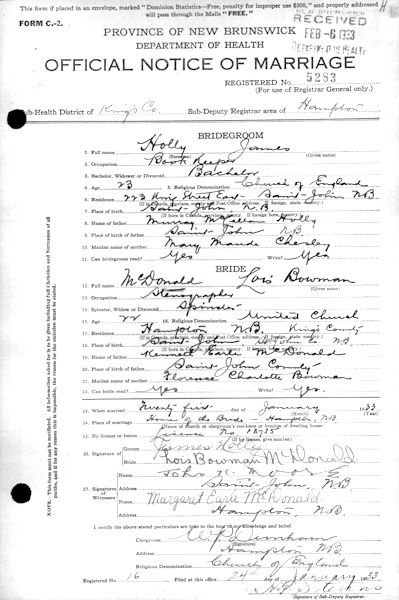 This form if placed in an envelope, marked "Dominion Statistics—Free, penalty for improper use $300," and properly addressed
will pass through the Mails "FREE."
FORM C.-2.
RECEIVED
FEB -6 1933
PROVINCE OF NEW BRUNSWICK
DEPARTMENT OF HEALTH
OFFICIAL NOTICE OF MARRIAGE
REGISTERED NO. 5283
(For use of Registrar General only.)
Sub-Health District of King's Co. Sub-Deputy Registrar area of Hampton
BRIDEGROOM
1. Full name Holly James
(Surname) (Given name)
2. Occupation Book Keeper
3. Bachelor, Widower or Divorced Bachelor
4. Age 23 5. Religious Denomination Church of England
6. Residence 223 King Street East - Saint John NB
7. Place of birth Saint John N.B.
8. Name of father Murray Holly
9. Place of birth Saint John N.B.
10. Maiden name of mother Mary Maude Chesley
11. Can bridegroom read? Yes Yes
BRIDE
12. Full name McDonald Lois Bowman
(Given name)
13. Occupation Stenographer
14. Spinster, Widow or Divorced Spinster
15. Age 22 16. Religious Denomination United Church
17. Residence Hampton N.B. King's County
18. Place of birth Saint John St John Co. N.B.
19. Name of father Kenneth Earle McDonald
20. Place of birth Saint John County
21. Maiden name of mother Florence Charlotte Bowman
22. Can bride read? Yes Yes.
23. When married Twenty first day of January 1933
24. Place of marriage Home of the Bride - Hampton, N.B.
25. By license or banns License No. 18715
26. Signature of
Groom James Holly
Bride Lois Bowman McDonald
27. Signatures of Witnesses
John Moore
Saint John, N.B.
Margaret Earle McDonald
Hampton, N.B.
I certify the above stated particulars are true to the best of my knowledge and belief.
(Signature)
Address Hampton N.B.
Religious Denomination Church of England
Registered No. 16 Filed at this office 24th day of January 1933
Signature of Sub-Deputy Registrar.
NOTICE.—This form must not be mutilated.